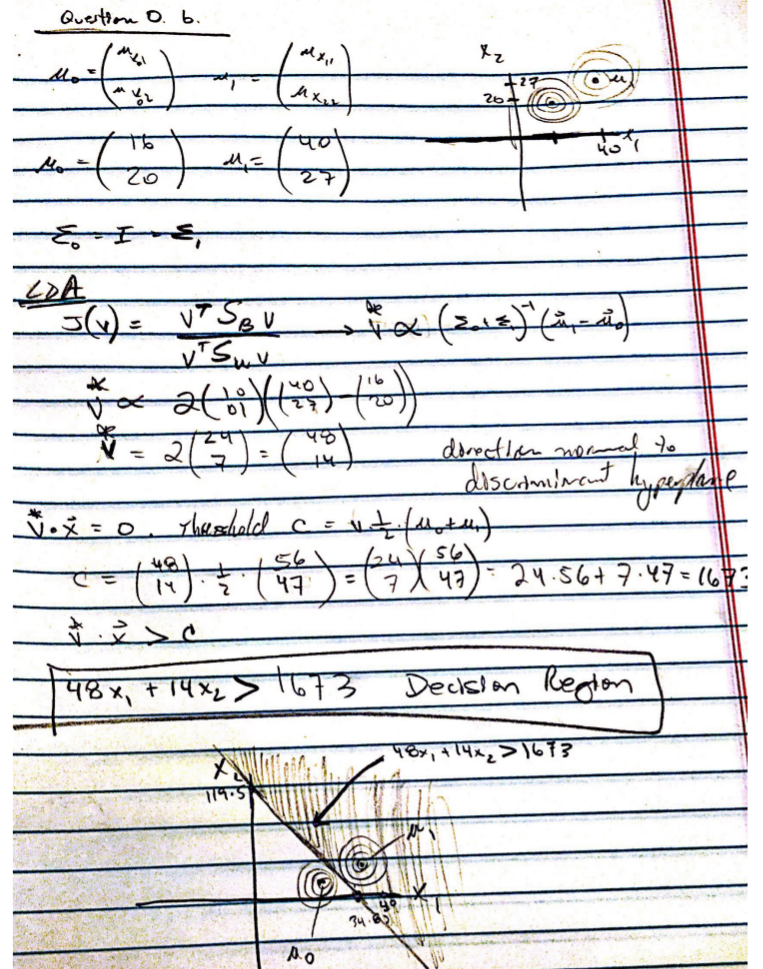 Question 0. b.
μ₀ = (μ_x₀₁ μ_x₀₂) μ₁ = (μ_x₁₁ μ_x₂₂)
x₂
27
20
μ₁
40 x₁
μ₀ = (16 20) μ₁ = (40 27)
Σ₀ = I = Σ₁
LDA
J(v) = vᵀ S_B v / vᵀ S_w v → v* ∝ (Σ₀+Σ₁)⁻¹ (μ⃗₁ - μ⃗₀)
v* ∝ 2(1 0 0 1)((40 27) - (16 20))
v* = 2(24 7) = (48 14) direction normal to
discriminant hyperplane
v* · x⃗ = 0. threshold c = v ½ · (μ₀+μ₁)
c = (48 14) · ½ · (56 47) = (24 7)(56 47) = 24·56 + 7·47 = 1673
v* · x⃗ > c
48x₁ + 14x₂ > 1673 Decision Region
48x₁ + 14x₂ > 1673
X₂
119.5
μ₁
X₁
40
34.85
μ₀